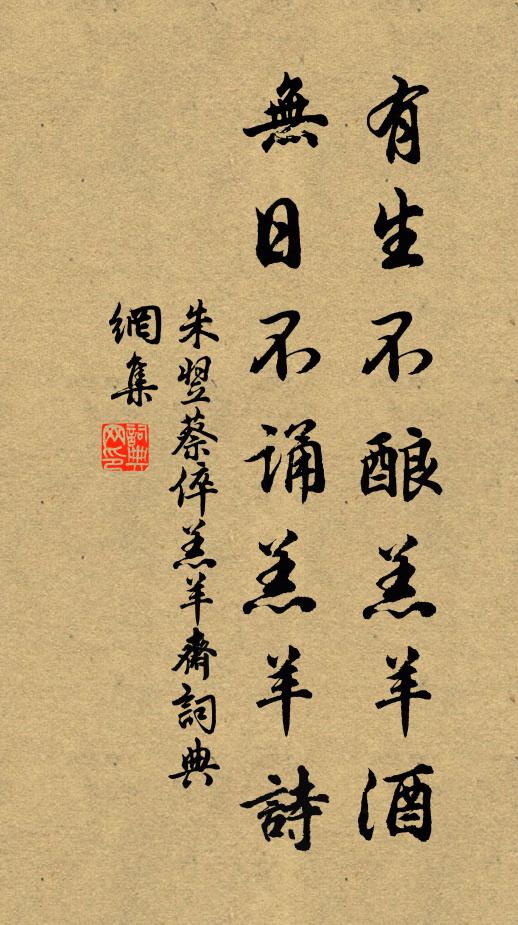 有生不酿羔羊酒
無日不诵羔羊詩
朱翌蔡倅羔羊齋詞典
網集
詞典
网印